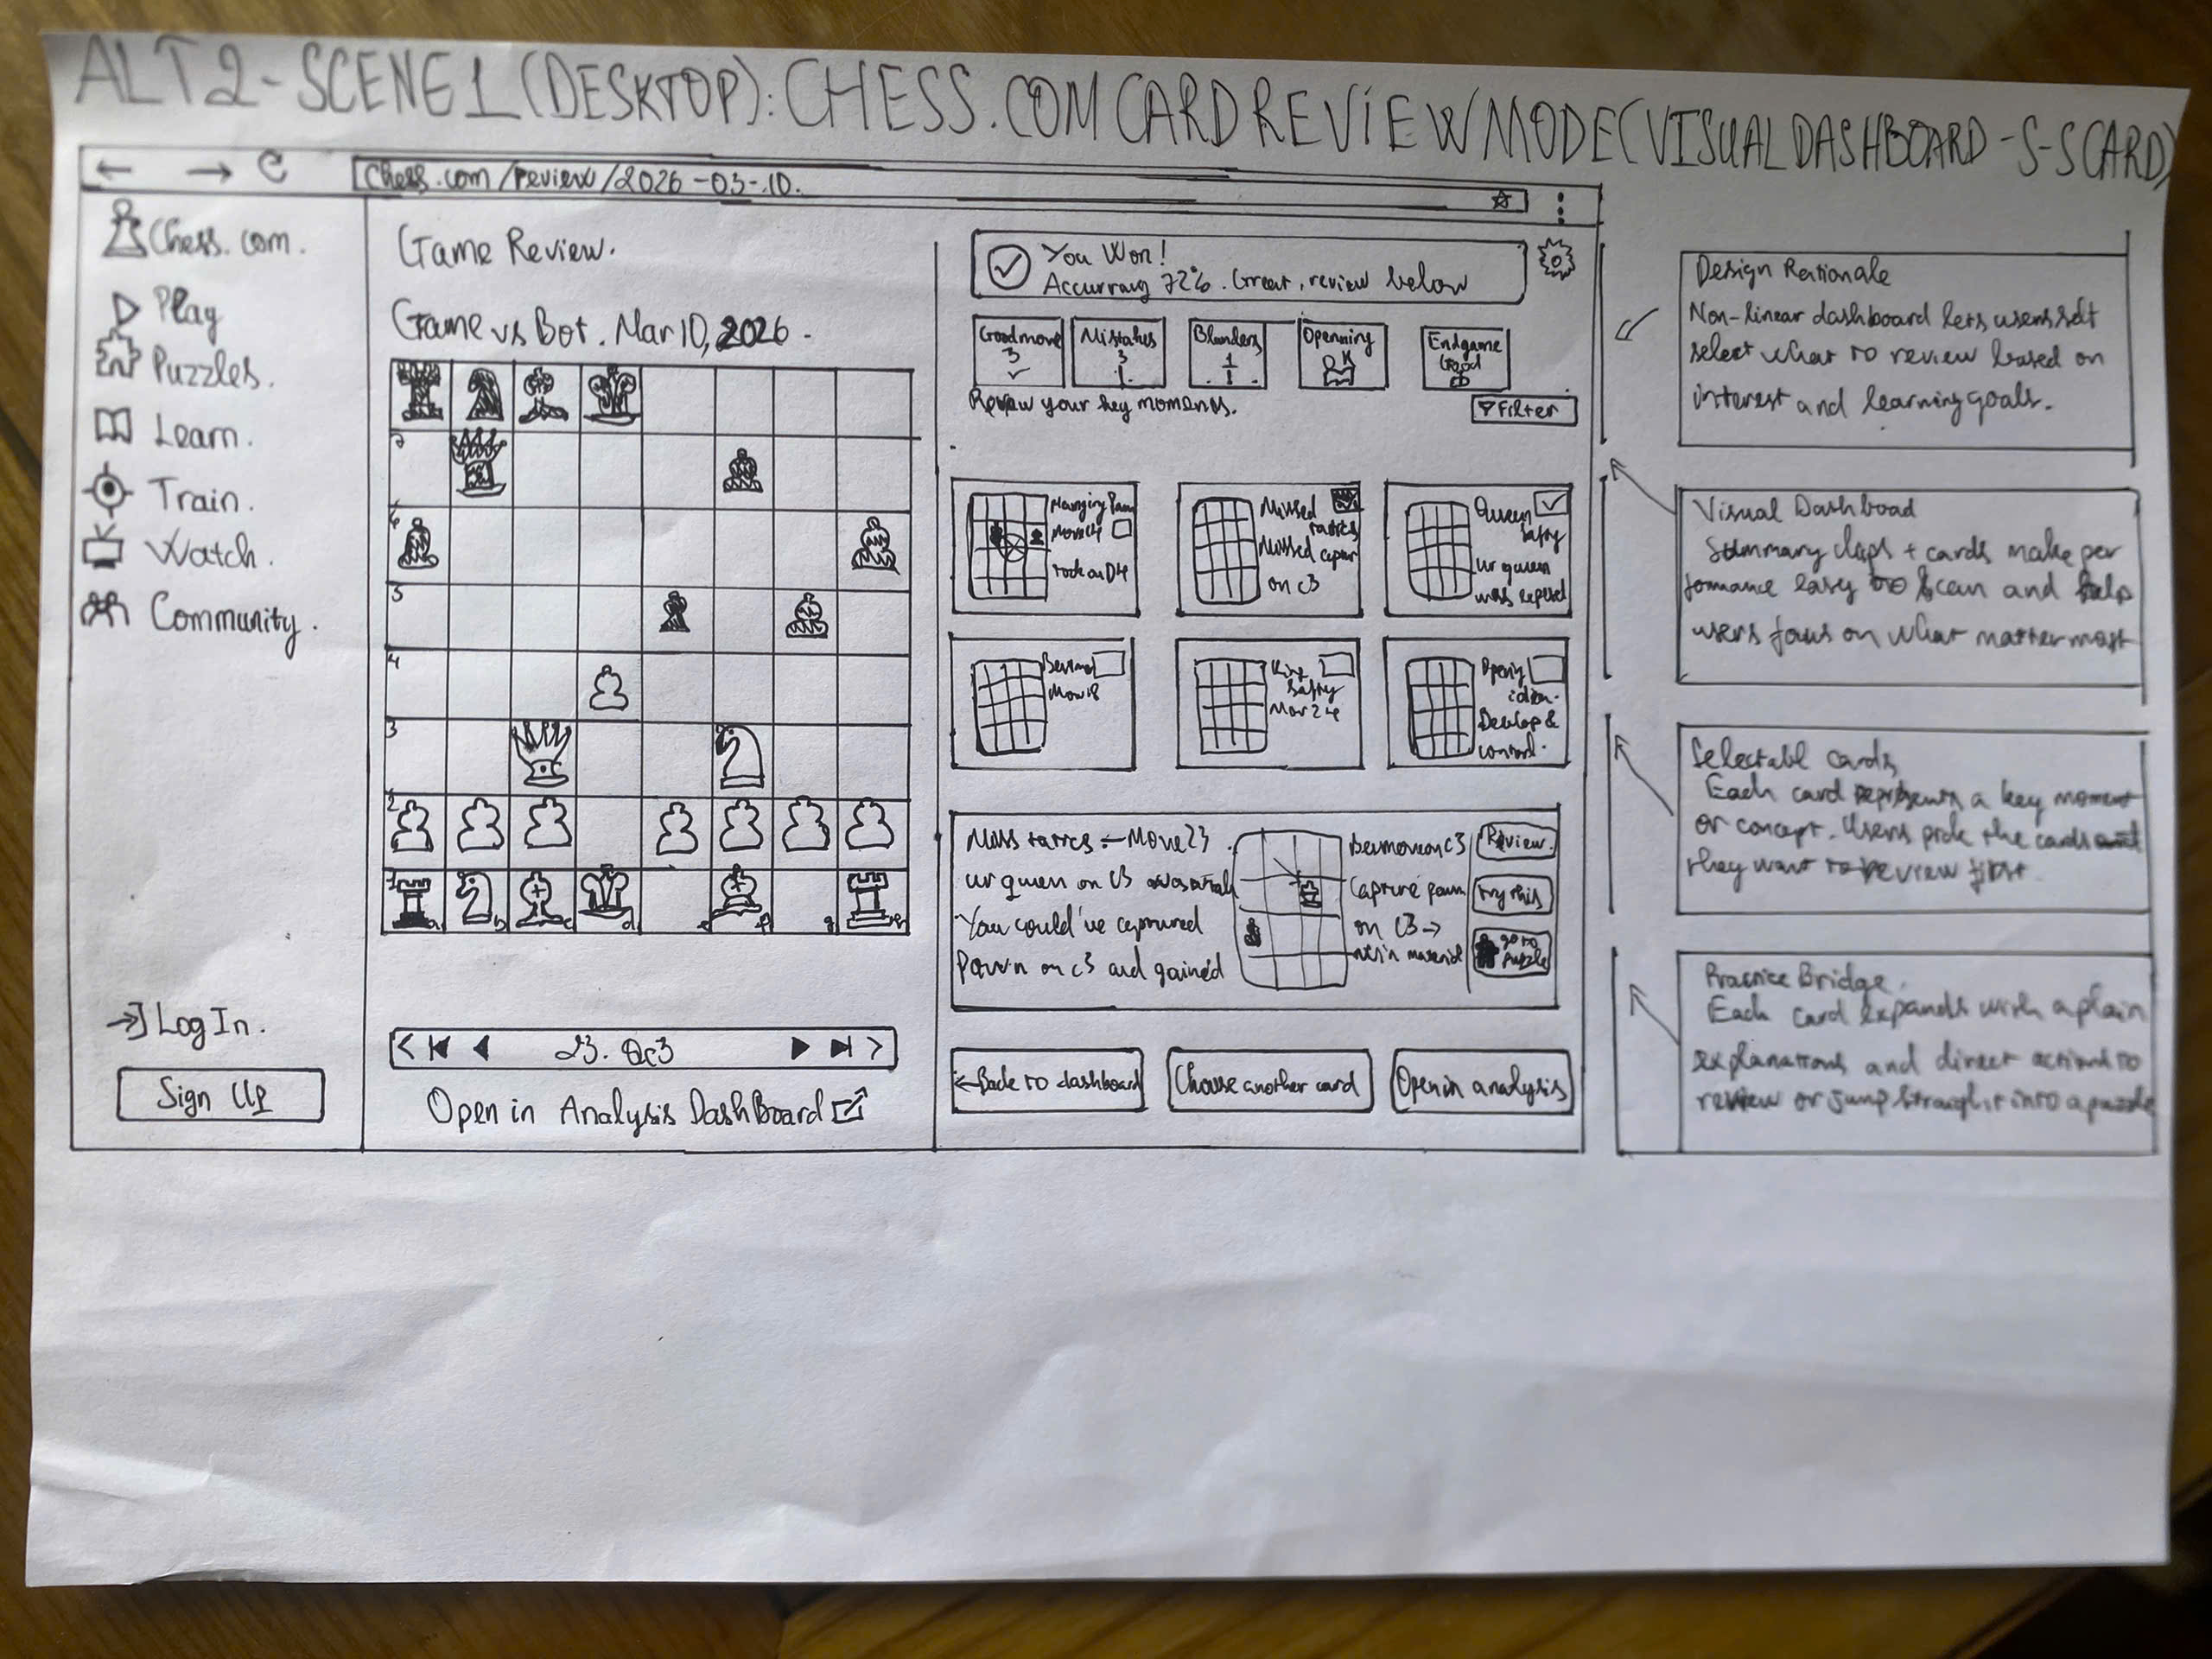 ALT 2 - SCENE 1 (DESKTOP): CHESS.COM CARD REVIEW MODE (VISUAL DASHBOARD - S-SCARD)
Chess.com/review/2026-03-10.
Chess.com.
Play
Puzzles.
Learn.
Train.
Watch.
Community.
Log In.
Sign Up
Game Review.
Game vs Bot. Mar 10, 2026.
7
6
5
4
3
2
1
a b c d e f g h
< 23. Qc3 >
Open in Analysis DashBoard
You Won!
Accurracy 72%. Great, review below
Good move
3
Mistakes
3
Blunders
1
Openning
Endgame
Good
Review your key moments.
Filter
Hanging Pawn
Move 14
rock on D4
Missed
tactics
Missed captur
on c3
Queen
Safty
ur queen
was exposed
Move 18
King
Safty
Mov 24
Opening
idea.
Develop &
control.
Miss tactics - Move 23.
ur queen on c3
You could've captured
Pawn on c3 and gained
Best move on c3
Capture pawn
on c3 →
material
Review.
Try this
go to
puzzle
← Back to dashboard
Choose another card
Open in analysis
Design Rationale
Non-linear dashboard lets users self
select what to review based on
interest and learning goals.
Visual Dashboad
Summary chips + cards make per
formance easy to scan and help
users focus on what matter most
Selectabl cards
Each card represents a key moment
or concept. Users pick the cards
they want to review first.
Practice Bridge.
Each card expands with a plain
explanations and direct actions to
review or jump straight into a puzzle